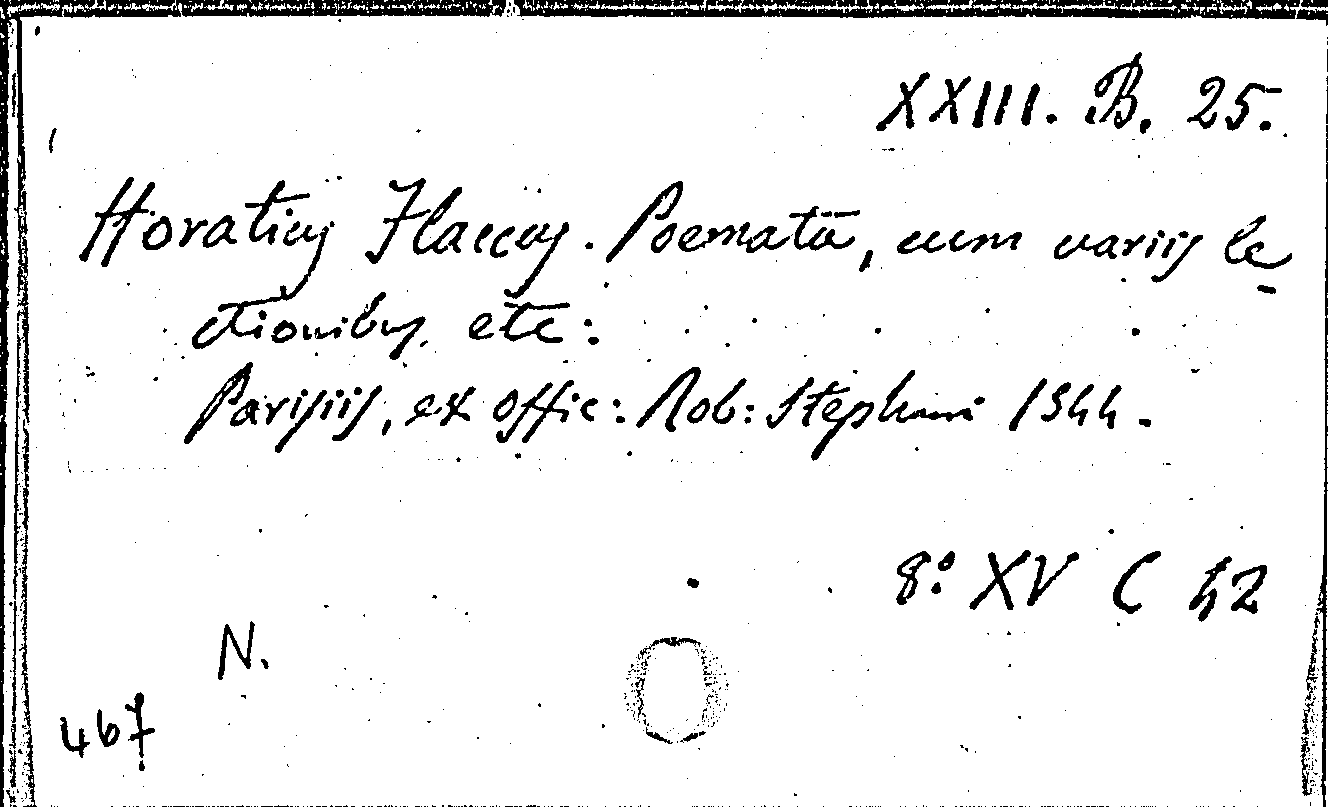 XXIII. B. 25.
Horatius Flaccus. Poemata, cum variis le
ctionibus etc:
Parisiis, ex offic: Rob: Stephani 1544.
8º XV C 42
N.
467